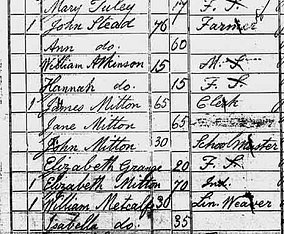 Mary Tuley 17 F. S.
1 John Stead 76 Farmer
Ann do. 60
William Atkinson 15 M. S.
Hannah do. 15 F. S.
1 James Mitton 65 Clerk
Jane Mitton 65
John Mitton 30 Schoo Master
Elizabeth Grange 20 F. S.
1 Elizabeth Mitton 70 Ind.
1 William Metcalfe 30 Lin. Weaver
Isabella do. 35